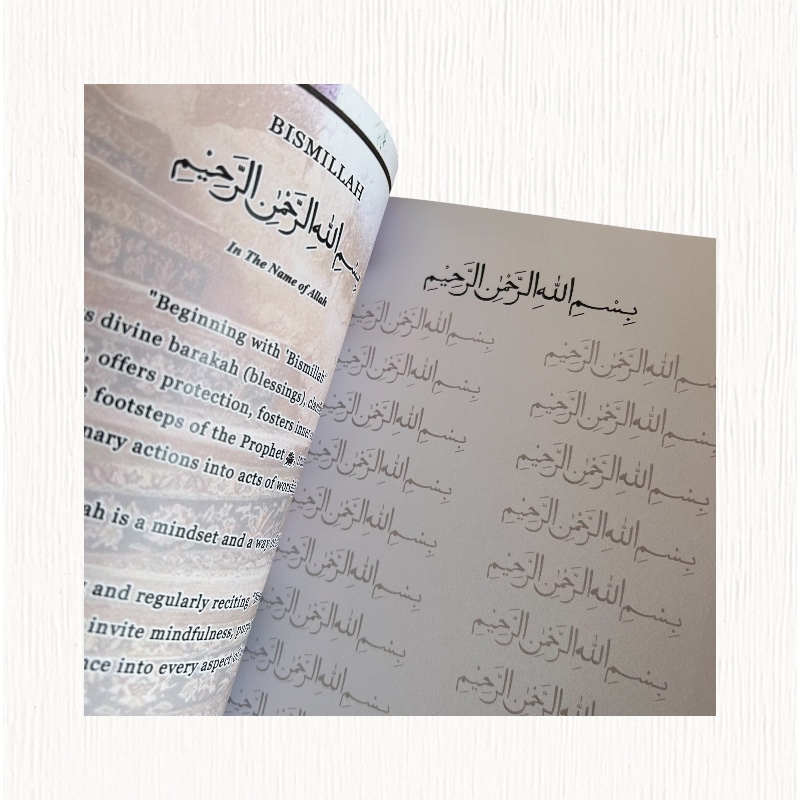 BISMILLAH
بِسْمِ اللهِ الرَّحْمٰنِ الرَّحِيْمِ
In The Name of Allah
"Beginning with 'Bismillah'
divine barakah (blessings),
offers protection, fosters
footsteps of the Prophet ﷺ
actions into acts of
is a mindset and a way
and regularly reciting
invite mindfulness,
into every aspect
بِسْمِ اللهِ الرَّحْمٰنِ الرَّحِيْمِ
بِسْمِ اللهِ الرَّحْمٰنِ الرَّحِيْمِ
بِسْمِ اللهِ الرَّحْمٰنِ الرَّحِيْمِ
بِسْمِ اللهِ الرَّحْمٰنِ الرَّحِيْمِ
بِسْمِ اللهِ الرَّحْمٰنِ الرَّحِيْمِ
بِسْمِ اللهِ الرَّحْمٰنِ الرَّحِيْمِ
بِسْمِ اللهِ الرَّحْمٰنِ الرَّحِيْمِ
بِسْمِ اللهِ الرَّحْمٰنِ الرَّحِيْمِ
بِسْمِ اللهِ الرَّحْمٰنِ الرَّحِيْمِ
بِسْمِ اللهِ الرَّحْمٰنِ الرَّحِيْمِ
بِسْمِ اللهِ الرَّحْمٰنِ الرَّحِيْمِ
بِسْمِ اللهِ الرَّحْمٰنِ الرَّحِيْمِ
بِسْمِ اللهِ الرَّحْمٰنِ الرَّحِيْمِ
بِسْمِ اللهِ الرَّحْمٰنِ الرَّحِيْمِ
بِسْمِ اللهِ الرَّحْمٰنِ الرَّحِيْمِ
بِسْمِ اللهِ الرَّحْمٰنِ الرَّحِيْمِ